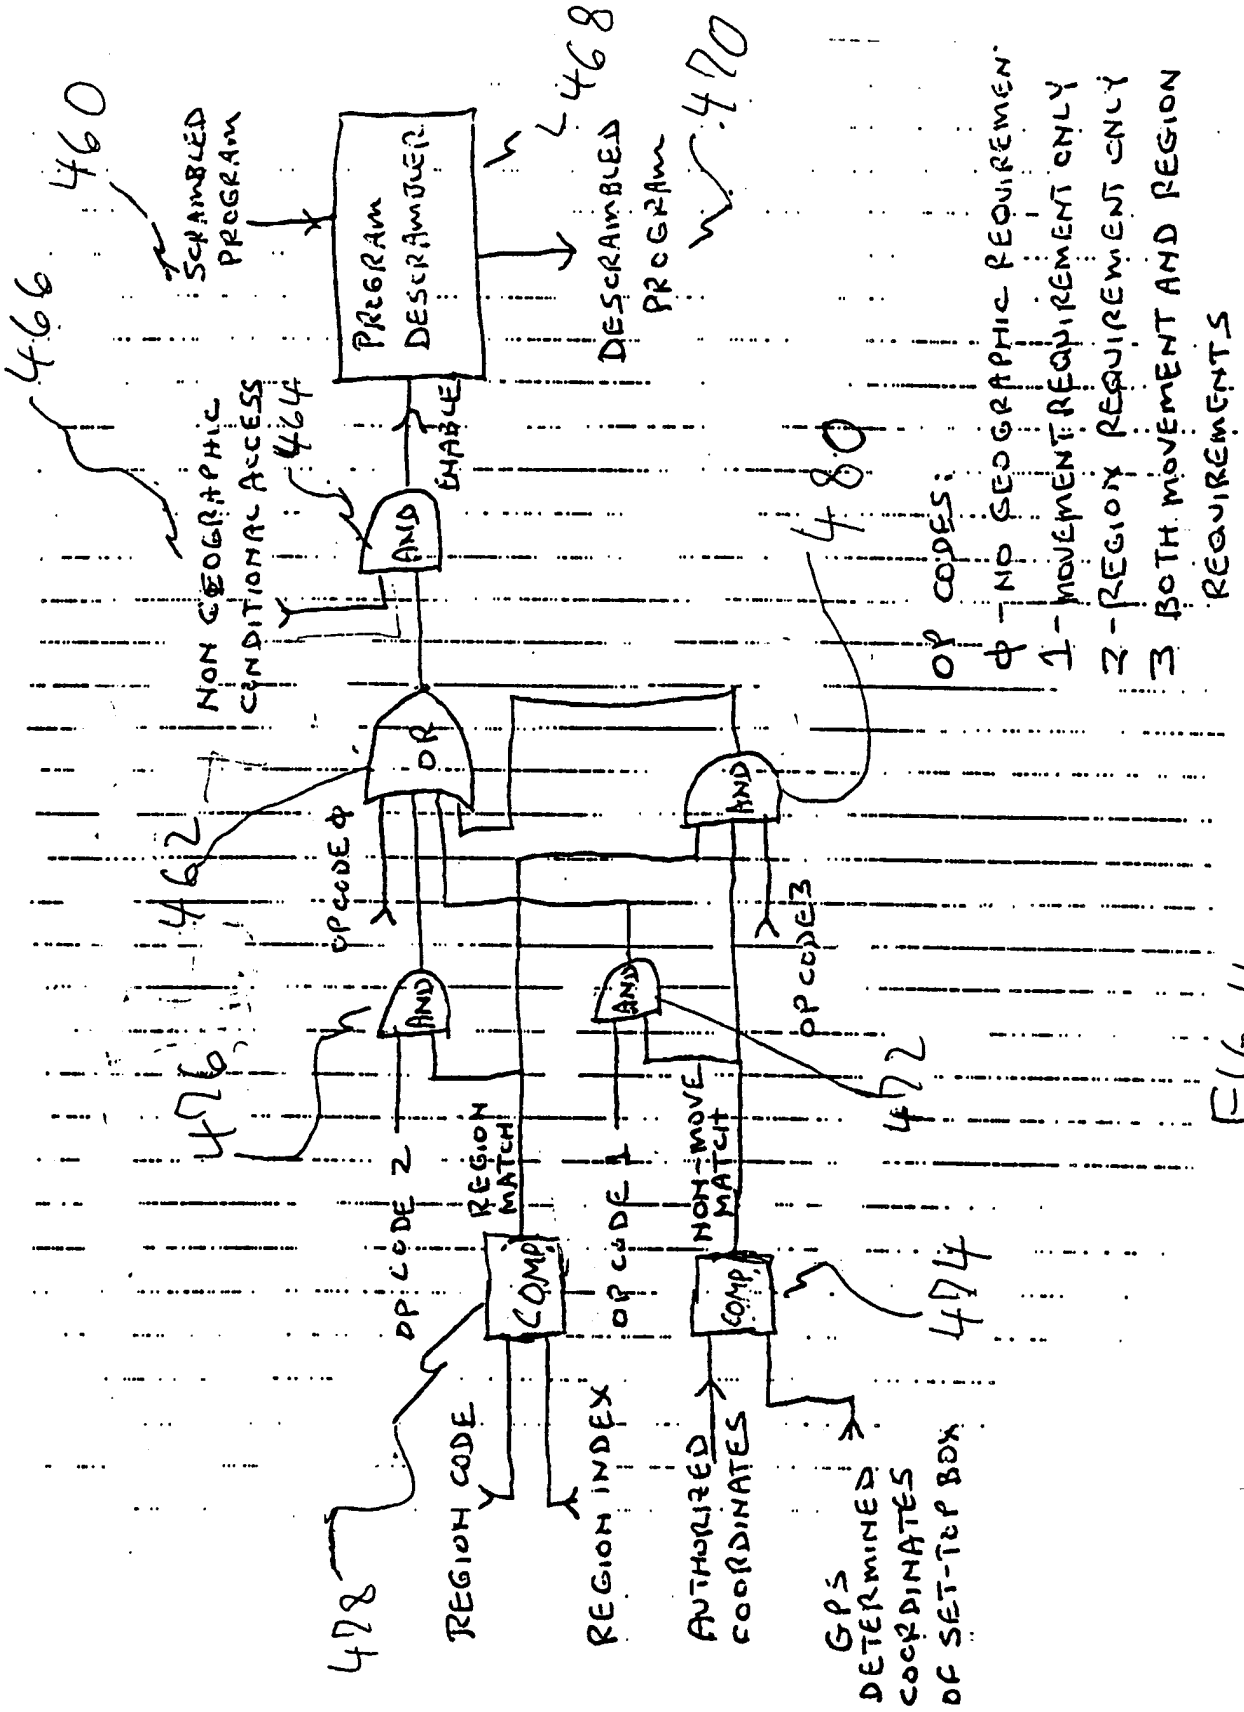 466
460
NON GEOGRAPHIC
CONDITIONAL ACCESS
464
SCRAMBLED
PROGRAM
PROGRAM
DESCRAMBLER
468
ENABLE
DESCRAMBLED
PROGRAM
470
462
OP CODE φ
OR
AND
476
AND
OP CODE 2
REGION
MATCH
478
REGION CODE
COMP.
REGION INDEX
OP CODE 1
AND
472
NON-MOVE
MATCH
AUTHORIZED
COORDINATES
COMP.
474
GPS
DETERMINED
COORDINATES
OF SET-TOP BOX
AND
OP CODE 3
480
OP CODES:
φ - NO GEOGRAPHIC REQUIREMEN
1 - MOVEMENT REQUIREMENT ONLY
2 - REGION REQUIREMENT ONLY
3 BOTH MOVEMENT AND REGION
REQUIREMENTS